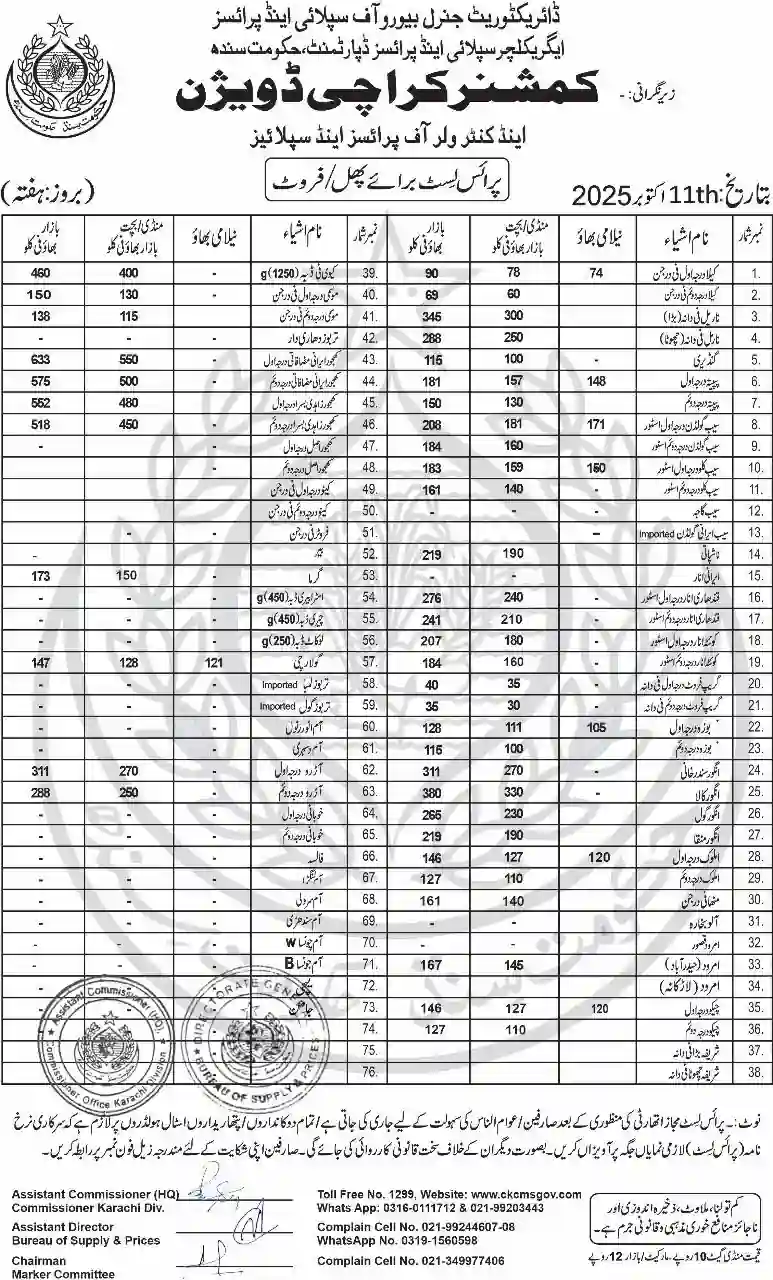 ڈائریکٹوریٹ جنرل بیورو آف سپلائی اینڈ پرائسز
ایگریکلچر سپلائی اینڈ پرائسز ڈپارٹمنٹ، حکومت سندھ
زیر نگرانی:- کمشنر کراچی ڈویژن
اینڈ کنٹرولر آف پرائسز اینڈ سپلائیز
تاریخ: 11th اکتوبر 2025
پرائس لسٹ برائے پھل / فروٹ
(بروز: ہفتہ)
نمبر شمار نام اشیاء نیلامی بھاؤ منڈی/بچت بازار بھاؤ فی کلو بازار بھاؤ فی کلو
1. کیلا درجہ اول فی درجن 74 78 90
2. کیلا درجہ دوئم فی درجن 60 69
3. ناریل فی دانہ (بڑا) 300 345
4. ناریل فی دانہ (چھوٹا) 250 288
5. گنڈیری - 100 115
6. پپیتہ درجہ اول 148 157 181
7. پپیتہ درجہ دوئم 130 150
8. سیب گولڈن درجہ اول اسٹور 171 181 208
9. سیب گولڈن درجہ دوئم اسٹور 160 184
10. سیب کلو درجہ اول اسٹور 150 159 183
11. سیب کلو درجہ دوئم اسٹور - 140 161
12. سیب گاجہ - - -
13. سیب ایرانی گولڈن Imported -
14. ناشپاتی 190 219
15. ایرانی انار - -
16. قندھاری انار درجہ اول اسٹور - 240 276
17. قندھاری انار درجہ دوئم اسٹور - 210 241
18. کوئٹہ انار درجہ اول اسٹور 180 207
19. کوئٹہ انار درجہ دوئم اسٹور - 160 184
20. گریپ فروٹ درجہ اول فی دانہ - 35 40
21. گریپ فروٹ درجہ دوئم فی دانہ - 30 35
22. بوزہ درجہ اول 105 111 128
23. بوزہ درجہ دوئم 100 115
24. انگور سندرخانی - 270 311
25. انگور کالا - 330 380
26. انگور گول 230 265
27. انگور منقا 190 219
28. املوک درجہ اول 120 127 146
29. املوک درجہ دوئم 110 127
30. مٹھائی درجن 140 161
31. آلو بخارہ - -
32. امرود قصور - -
33. امرود (حیدرآباد) 145 167
34. امرود (لاڑکانہ)
35. چیکو درجہ اول 120 127 146
36. چیکو درجہ دوئم 110 127
37. شریفہ بڑا فی دانہ
38. شریفہ چھوٹا فی دانہ
نمبر شمار نام اشیاء نیلامی بھاؤ منڈی/بچت بازار بھاؤ فی کلو بازار بھاؤ فی کلو
39. کیوی فی ڈبہ (1250)g - 400 460
40. موسمی درجہ اول فی درجن - 130 150
41. موسمی درجہ دوئم فی درجن - 115 138
42. تربوز دھاری دار - - -
43. کھجور ایرانی مضافاتی درجہ اول - 550 633
44. کھجور ایرانی مضافاتی درجہ دوئم - 500 575
45. کھجور زاہدی بسرا درجہ اول - 480 552
46. کھجور زاہدی بسرا درجہ دوئم - 450 518
47. کھجور اصل درجہ اول - - -
48. کھجور اصل درجہ دوئم - - -
49. کینو درجہ اول فی درجن -
50. کینو درجہ دوئم فی درجن -
51. فروٹر فی درجن - -
52. بیر - -
53. گرما - 150 173
54. اسٹرابیری ڈبہ (450)g - - -
55. چیری ڈبہ (450)g - - -
56. لوکاٹ ڈبہ (250)g - - -
57. گولارچی 121 128 147
58. تربوز لمبا Imported - - -
59. تربوز گول Imported - - -
60. آم انور رٹول - - -
61. آم دسہری - - -
62. آڑو درجہ اول - 270 311
63. آڑو درجہ دوئم - 250 288
64. خوبانی درجہ اول - - -
65. خوبانی درجہ دوئم - - -
66. فالسہ - - -
67. آم لنگڑا - - -
68. آم سرولی - - -
69. آم سندھڑی - - -
70. آم چونسا W - - -
71. آم چونسا B - - -
72. لیچی
73.
74.
75.
76.
Assistant Commissioner (HQ).
Commissioner Office Karachi Division
DIRECTORATE GENERAL
BUREAU OF SUPPLY & PRICES
نوٹ:- پرائس لسٹ مجاز اتھارٹی کی منظوری کے بعد صارفین / عوام الناس کی سہولت کے لیے جاری کی جاتی ہے / تمام دوکانداروں / پتھاریداروں اسٹال ہولڈروں پر لازم ہے کہ سرکاری نرخ
نامہ (پرائس لسٹ) لازمی نمایاں جگہ پر آویزاں کریں۔ بصورت دیگر ان کے خلاف سخت قانونی کارروائی کی جائے گی۔ صارفین اپنی شکایت کے لئے مندرجہ زیل فون نمبر پر رابطہ کریں۔
Assistant Commissioner (HQ)
Commissioner Karachi Div.
Assistant Director
Bureau of Supply & Prices
Chairman
Marker Committee
Toll Free No. 1299, Website: www.ckcmsgov.com
Whats App: 0316-0111712 & 021-99203443
Complain Cell No. 021-99244607-08
WhatsApp No. 0319-1560598
Complain Cell No. 021-349977406
کم تولنا، ملاوٹ، ذخیرہ اندوزی اور
ناجائز منافع خوری مذہبی و قانونی جرم ہے۔
قیمت منڈی گیٹ 10 روپے ۔ مارکیٹ / بازار 12 روپے